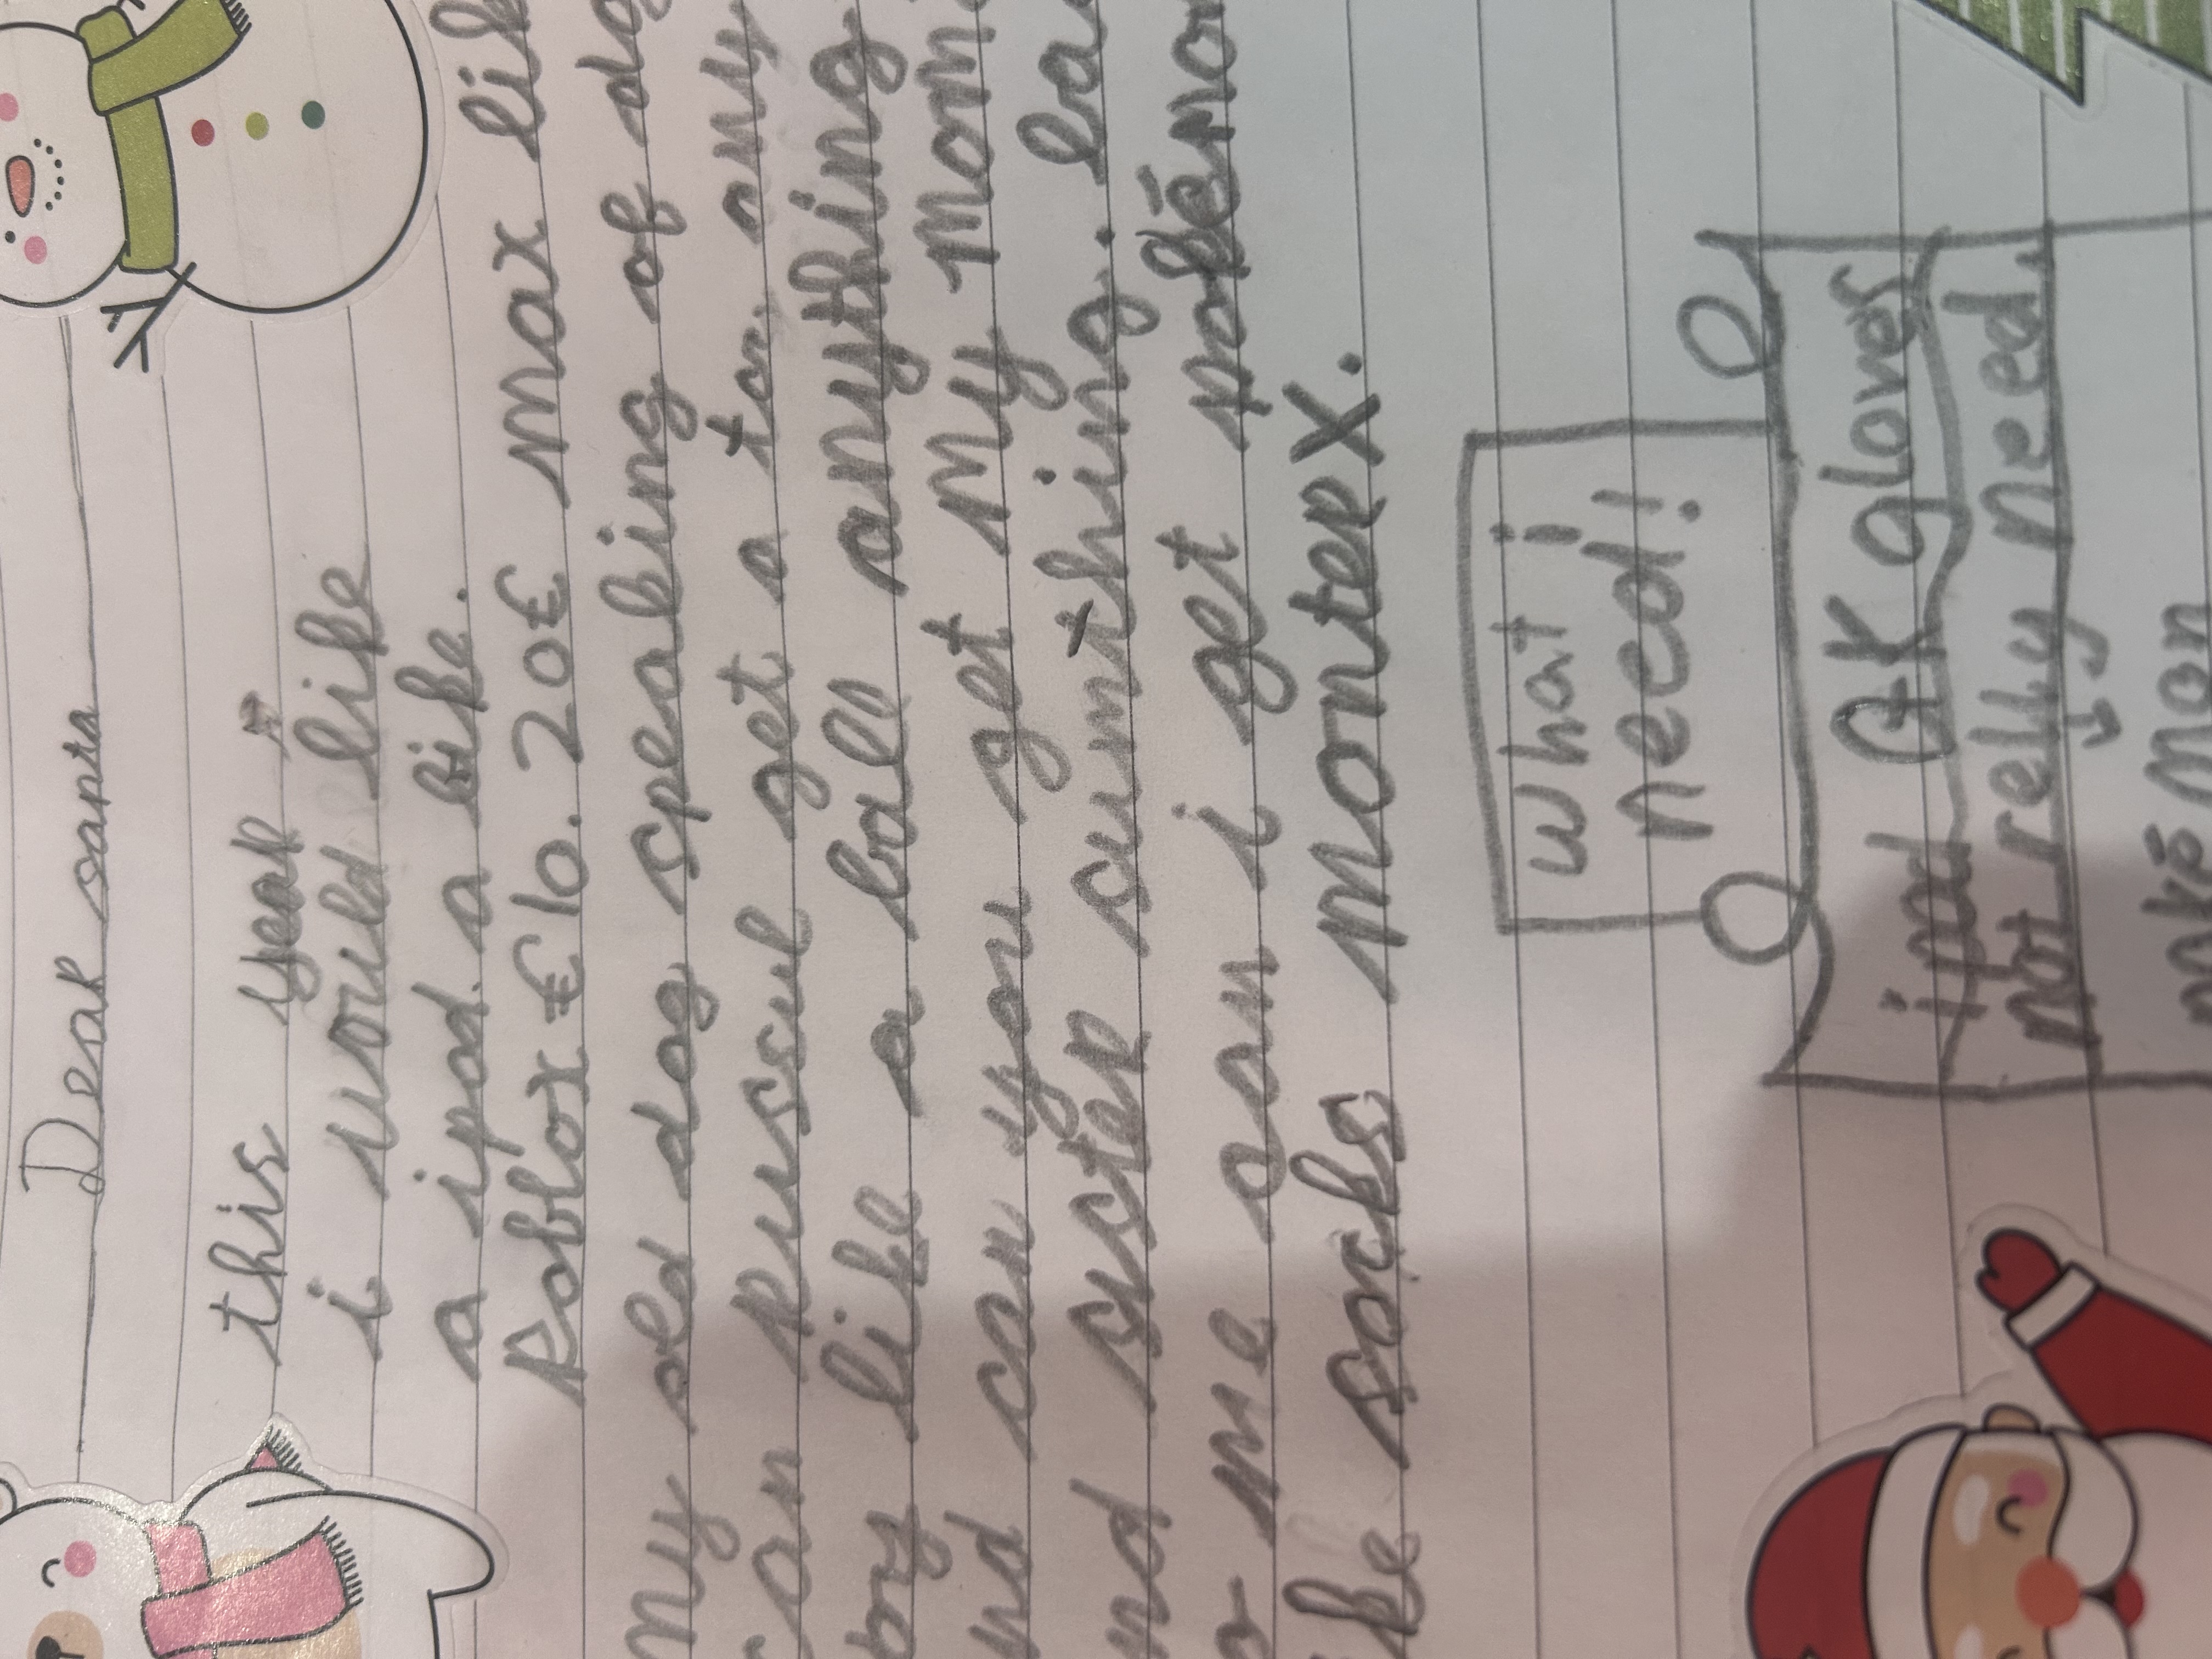 Dear santa
this year
i would like
a ipad. a bike.
Roblox €10. 20€ max like
my old dog speaking of dog
can russul get a to, any
toy like a ball anything
and can you get my mom
and sister sumthing.
me can i get pokémon
socks monterX.
what i
need!
ipad GK gloves
not relly need
poké mon